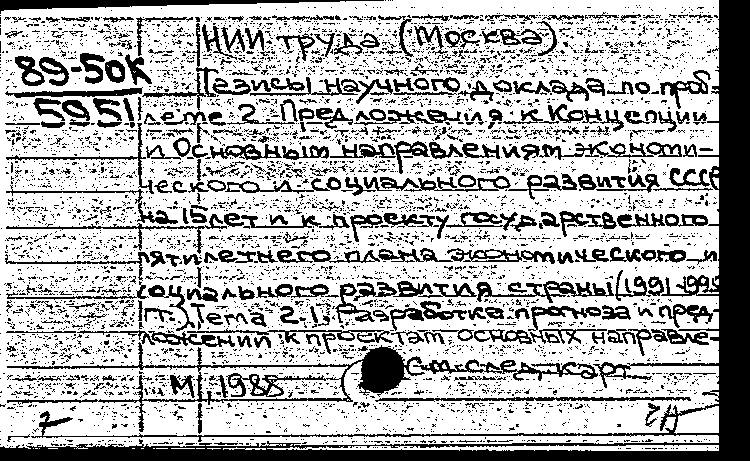 НИИ труда (Москва).
89-50к
5951
Тезисы научного доклада по проб-
леме 2 Предложения к Концепции
и Основным направлениям экономи-
ческого и социального развития СССР
на 15 лет и к проекту государственного
пятилетнего плана экономического и
социального развития страны (1991-1995
гг.). Тема 2.1. Разработка прогноза и пред-
ложений к проектам основных направле-
См. след. карт
М., 1988